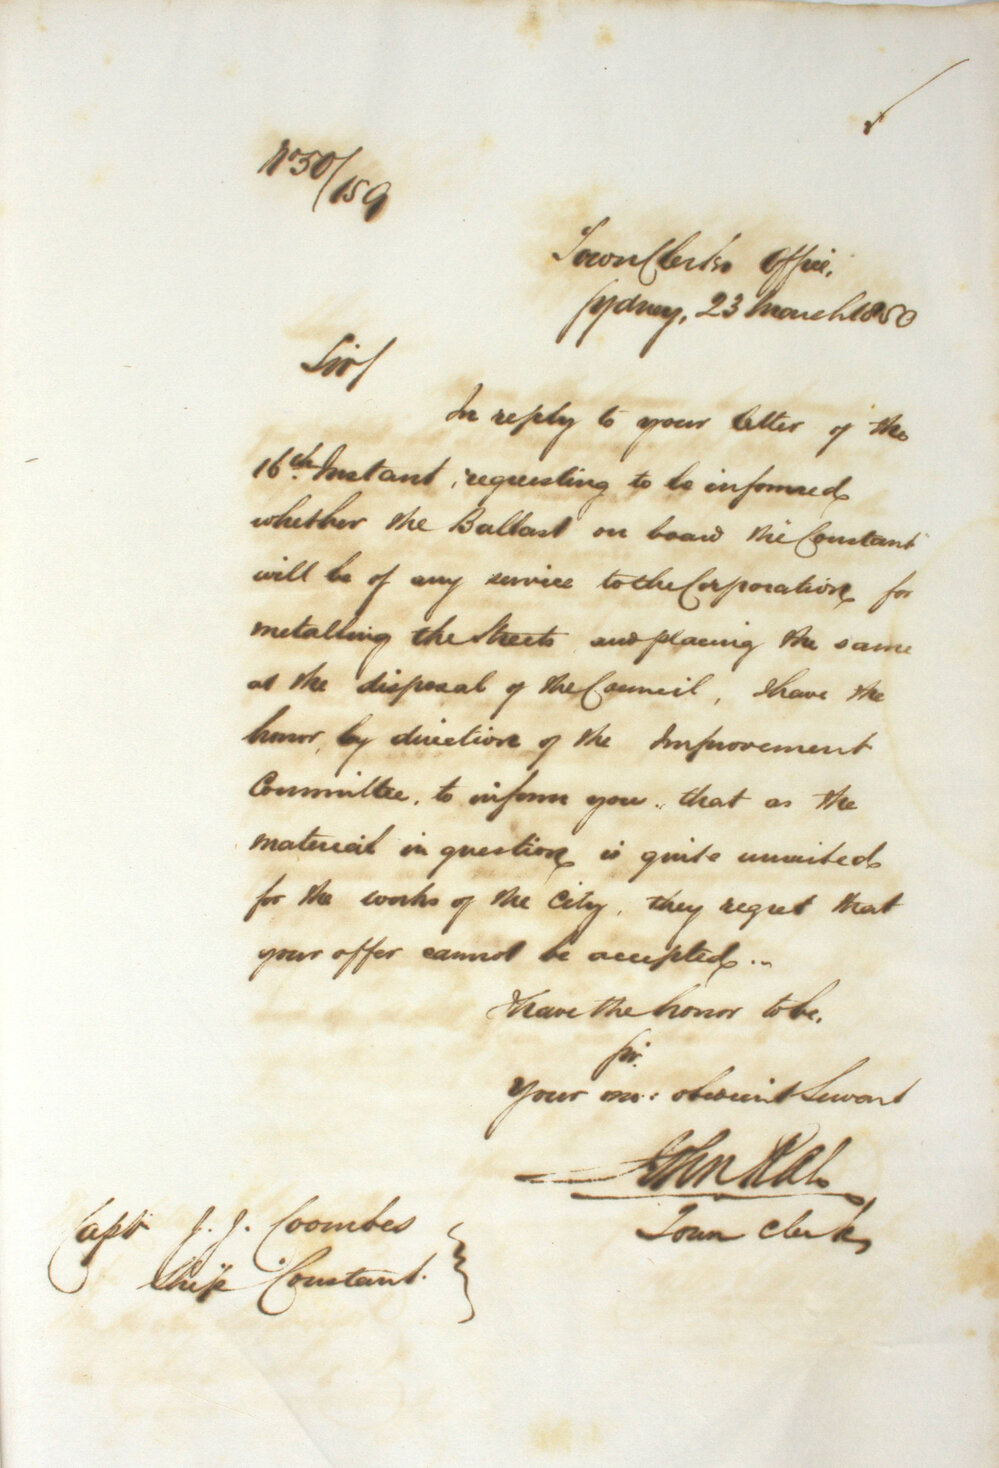 No 50/159
Town Clerk's Office,
Sydney, 23 March 1850
Sir/
In reply to your letter of the
16th Instant, requesting to be informed
whether the Ballast on board the Constant
will be of any service to the Corporation for
metalling the Streets and placing the same
at the disposal of the Council, I have the
honor, by direction of the Improvement
Committee, to inform you, that as the
material in question is quite unsuited
for the works of the City, they regret that
your offer cannot be accepted..
I have the honor to be,
Sir.
Your mo: obedient Servant
John Rae
Town Clerk
Capt J. J. Coombes
Ship Constant.